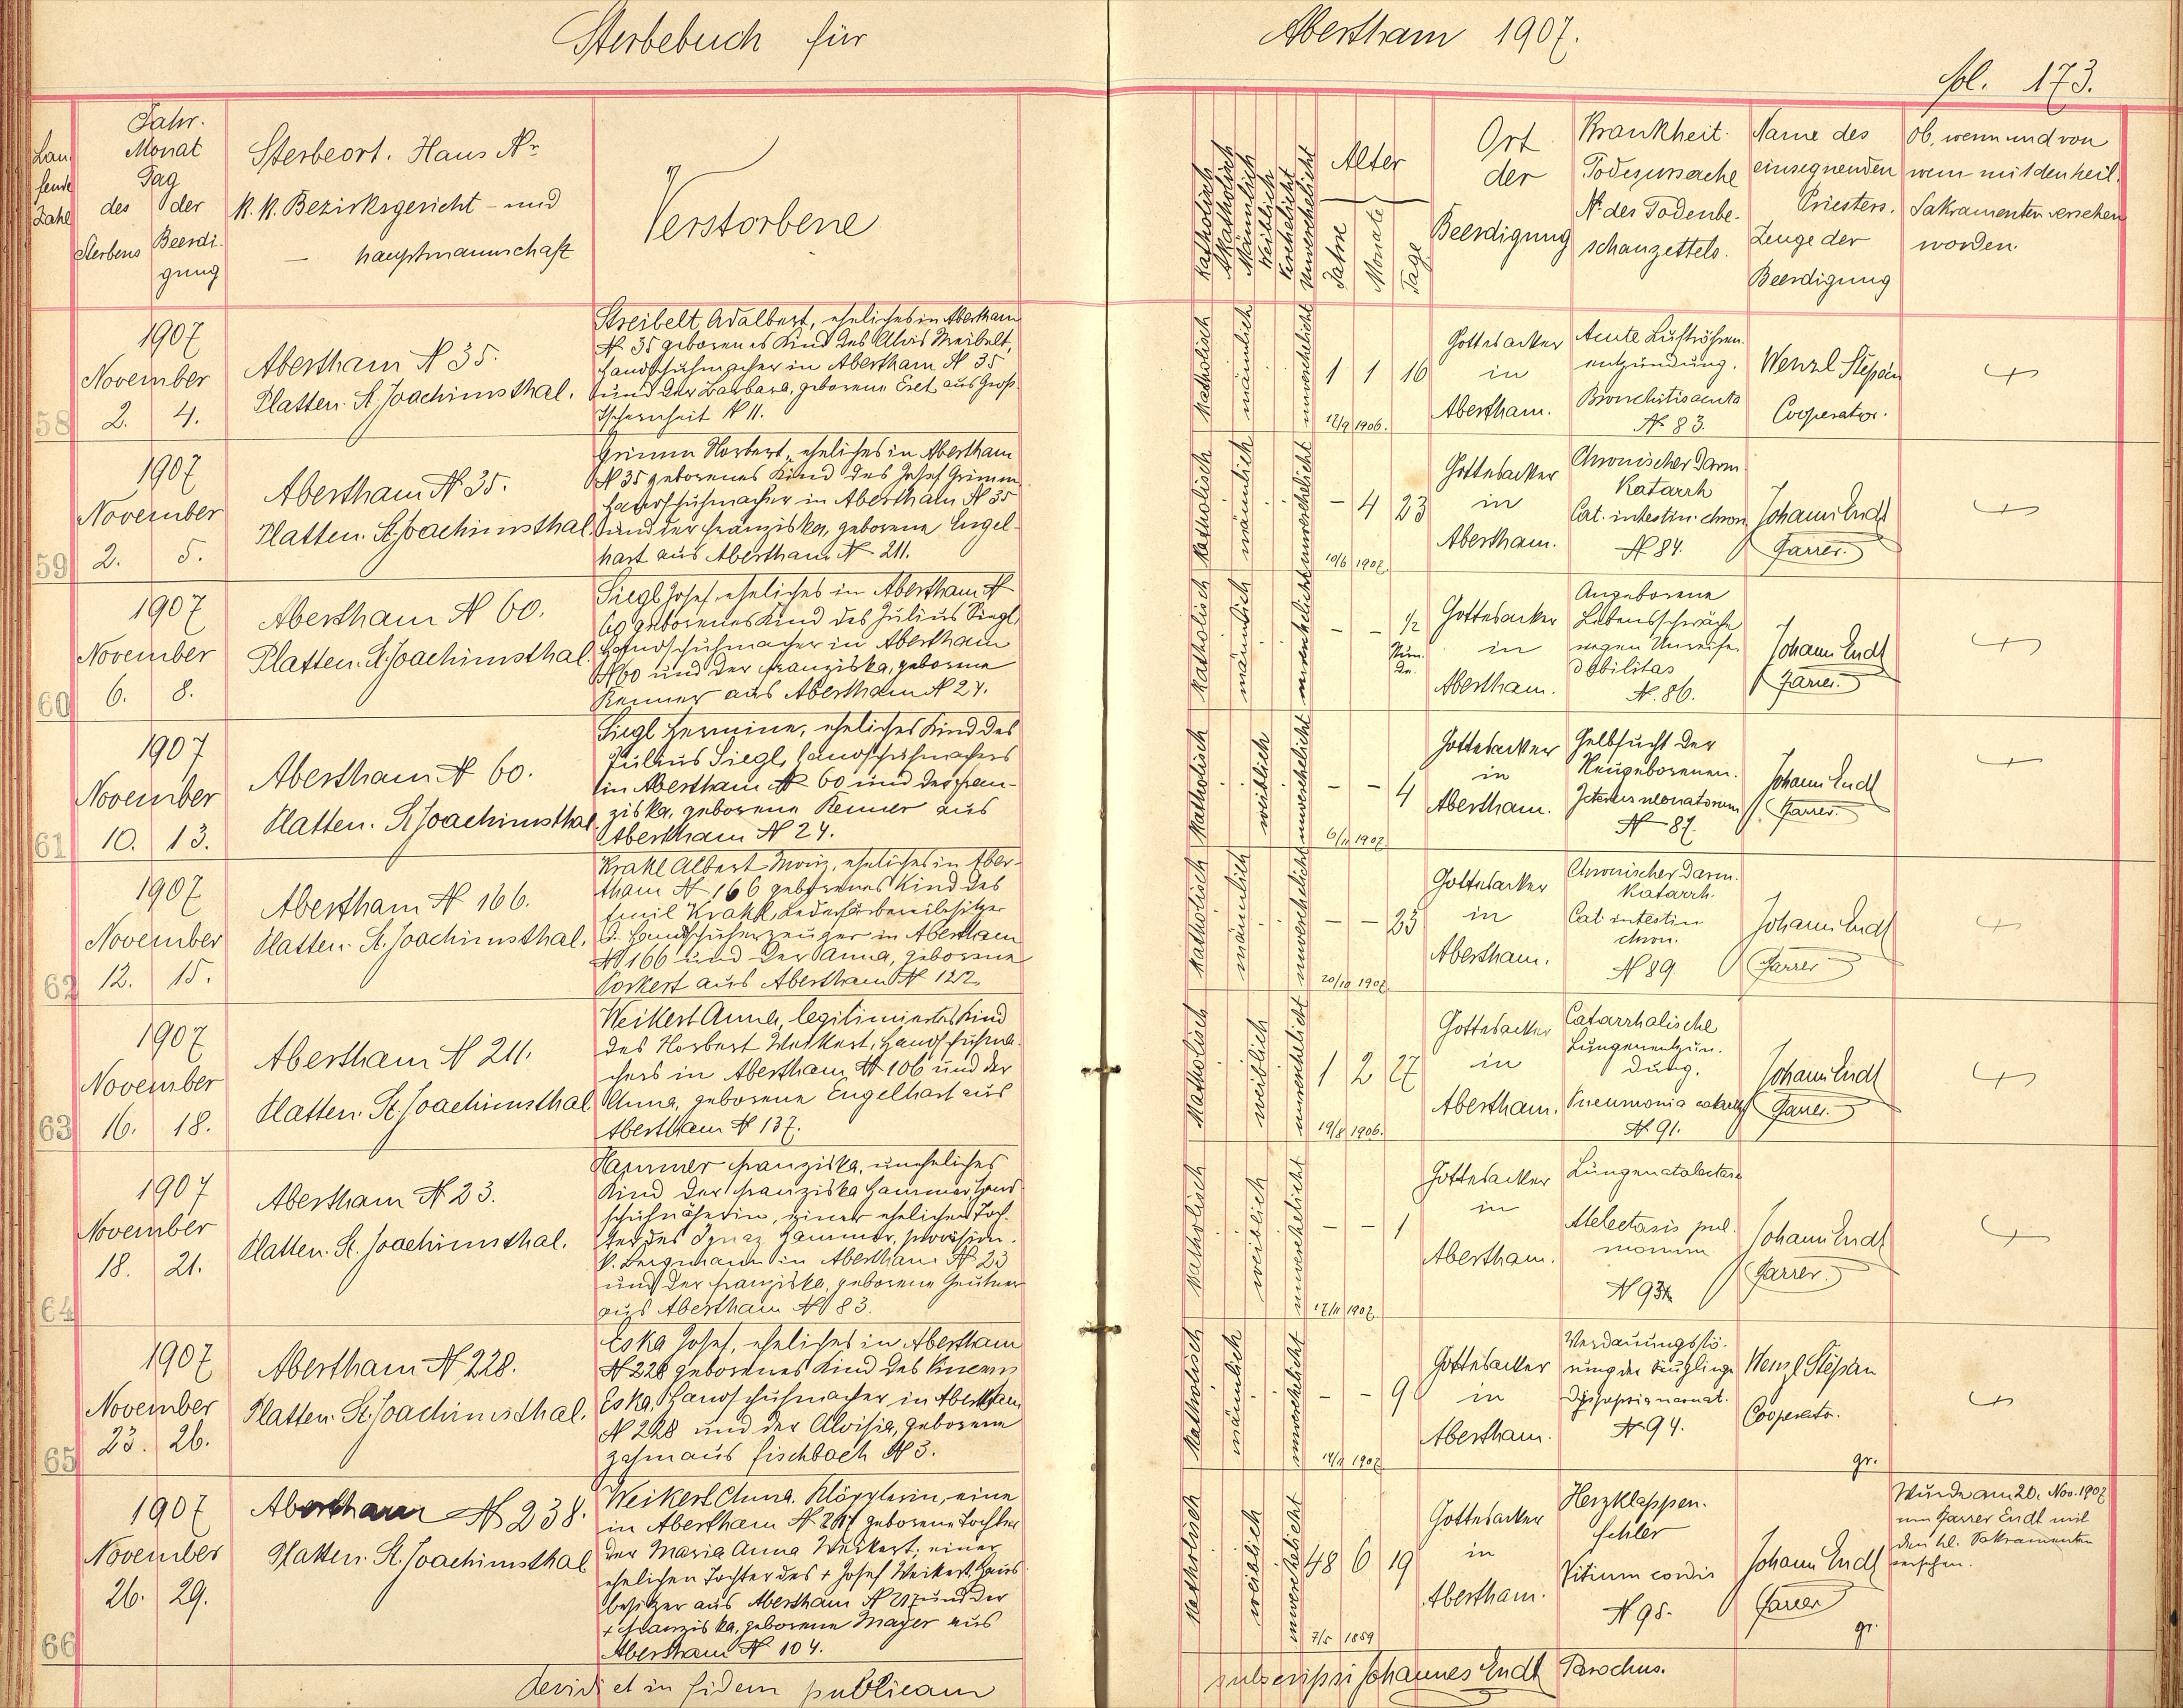 Sterbebuch für
Abertham 1907.
fol. 173.
Lau
fende
Zahl
Jahr.
Monat
Tag
des der
Sterbens Beerdi-
gung
Sterbeort. Haus Nr.
K. K. Bezirksgericht - und
- hauptmannschaft
Verstorbene
Katholisch
Akatholisch
Männlich
Weiblich
Verehelicht
Unverehelicht
Alter
Jahre
Monate
Tage
Ort
der
Beerdigung
Krankheit.
Todesursache
N. des Todenbe-
schauzettels.
Name des
einsegnenden
Priesters.
Zeuge der
Beerdigung
Ob, wenn und von
wem mit den heil.
Sakramenten versehen
worden.
58
1907
November
2. 4.
Abertham N 35.
Platten. St. Joachimsthal.
Streibelt, Adalbert, eheliches in Abertham
N. 35 geborenes Kind des Alois Streibelt,
Handschuhmacher in Abertham N 35
und der Barbara, geborene Eret aus Groß-
Tschernheit N 11.
Katholisch
männlich
unverehelicht
1 1 16
12/9 1906.
Gottesacker
in
Abertham.
Acute Luftröhren-
entzündung.
Bronchitis acuta
N. 83.
Wenzl Stěpán
Cooperator.
59
1907
November
2. 5.
Abertham N. 35.
Platten. St. Joachimsthal.
Grimm Norbert, eheliches in Abertham
N 35 geborenes Kind des Josef Grimm
Handschuhmacher in Abertham N 35
und der Franziska, geborene Engel-
hart aus Abertham N. 211.
Katholisch
männlich
unverehelicht
- 4 23
10/6 1907.
Gottesacker
in
Abertham.
Chronischer Darm-
Katarrh
Cat. intestin. chron.
N 84.
Johann Endl
Pfarrer.
60
1907
November
6. 8.
Abertham N 60.
Platten. St. Joachimsthal.
Siegl Josef, eheliches in Abertham N
60 geborenes Kind des Julius Siegl,
Handschuhmacher in Abertham
N 60 und der Franziska, geborene
Renner aus Abertham N 24.
Katholisch
männlich
unverehelicht
- - ½
Stun-
de.
Gottesacker
in
Abertham.
Angeborene
Lebensschwäche
wegen Unreife.
Debilitas
N. 86.
Johann Endl
Pfarrer.
61
1907
November
10. 13.
Abertham N 60.
Platten. St. Joachimsthal.
Siegl Hermine, eheliches Kind des
Julius Siegl, Handschuhmachers
in Abertham N 60 und der Fran-
ziska, geborene Renner aus
Abertham N 24.
Katholisch
weiblich
unverehelicht
- - 4
6/11 1907.
Gottesacker
in
Abertham.
Gelbsucht der
Neugeborenen.
Icterus neonatorum
N 87.
Johann Endl
Pfarrer.
62
1907
November
12. 15.
Abertham N 166.
Platten. St. Joachimsthal.
Krakl Albert Moriz, eheliches in Aber-
tham N 166 geborenes Kind des
Emil Krakl, Lederfärbereibesitzer
u. Handschuherzeuger in Abertham
N 166 und der Anna, geborene
Porkert aus Abertham N 122.
Katholisch
männlich
unverehelicht
- - 23
20/10 1907.
Gottesacker
in
Abertham.
Chronischer Darm-
Katarrh.
Cat. intestin
chron.
N 89.
Johann Endl
Pfarrer
63
1907
November
16. 18.
Abertham N 211.
Platten. St. Joachimsthal.
Weikert Anna, legitimiertes Kind
des Norbert Weikert, Handschuhma-
chers in Abertham N 106 und der
Anna, geborene Engelhart aus
Abertham N 137.
Katholisch
weiblich
unverehelicht
1 2 27
19/8 1906.
Gottesacker
in
Abertham.
Catarrhalische
Lungenentzün-
dung.
Pneumonia
N. 91.
Johann Endl
Pfarrer.
64
1907
November
18. 21.
Abertham N. 23.
Platten. St. Joachimsthal.
Hammer Franziska, uneheliches
Kind der Franziska Hammer, Hand-
schuhnäherin, einer ehelichen Toch-
ter des Ignaz Hammer, provision.
k. Bergmann in Abertham N. 23
und der Franziska, geborene Geutner
aus Abertham N 83.
Katholisch
weiblich
unverehelicht
- - 1
17/11 1907.
Gottesacker
in
Abertham.
Lungenatalectase
Atelectasis pul-
monum
N 93
Johann Endl
Pfarrer.
65
1907
November
23. 26.
Abertham N 228.
Platten. St. Joachimsthal.
Eska Josef, eheliches in Abertham
N 228 geborenes Kind des
Eska, Handschuhmacher in Abertham
N 228 und der Aloisia, geborene
Zahn aus Fischbach N 3.
Katholisch
männlich
unverehelicht
- - 9
14/11 1907.
Gottesacker
in
Abertham.
Verdauungsstö-
rung der Säuglinge
N 94.
Wenzl Stěpán
Cooperator.
gr.
66
1907
November
26. 29.
Abertham N 238.
Platten. St. Joachimsthal
Weikert Anna, Klöpplerin, eine
in Abertham N. 217 geborene Tochter
der Maria Anna Weikert, einer
ehelichen Tochter des + Josef Weikert, Haus-
besitzer aus Abertham N 217 und der
+ Franziska, geborene Mayer aus
Abertham N 104.
Katholisch
weiblich
unverehelicht
48 6 19
7/5 1859
Gottesacker
in
Abertham.
Herzklappen-
fehler
Vitium cordis
N 95.
Johann Endl
Pfarrer
gr.
Wurde am 20. Nov. 1907
vom Pfarrer Endl mit
den hl. Sakramenten
versehen.
Revidi et in fidem publicam
subscripsi Johannes Endl Parochus.